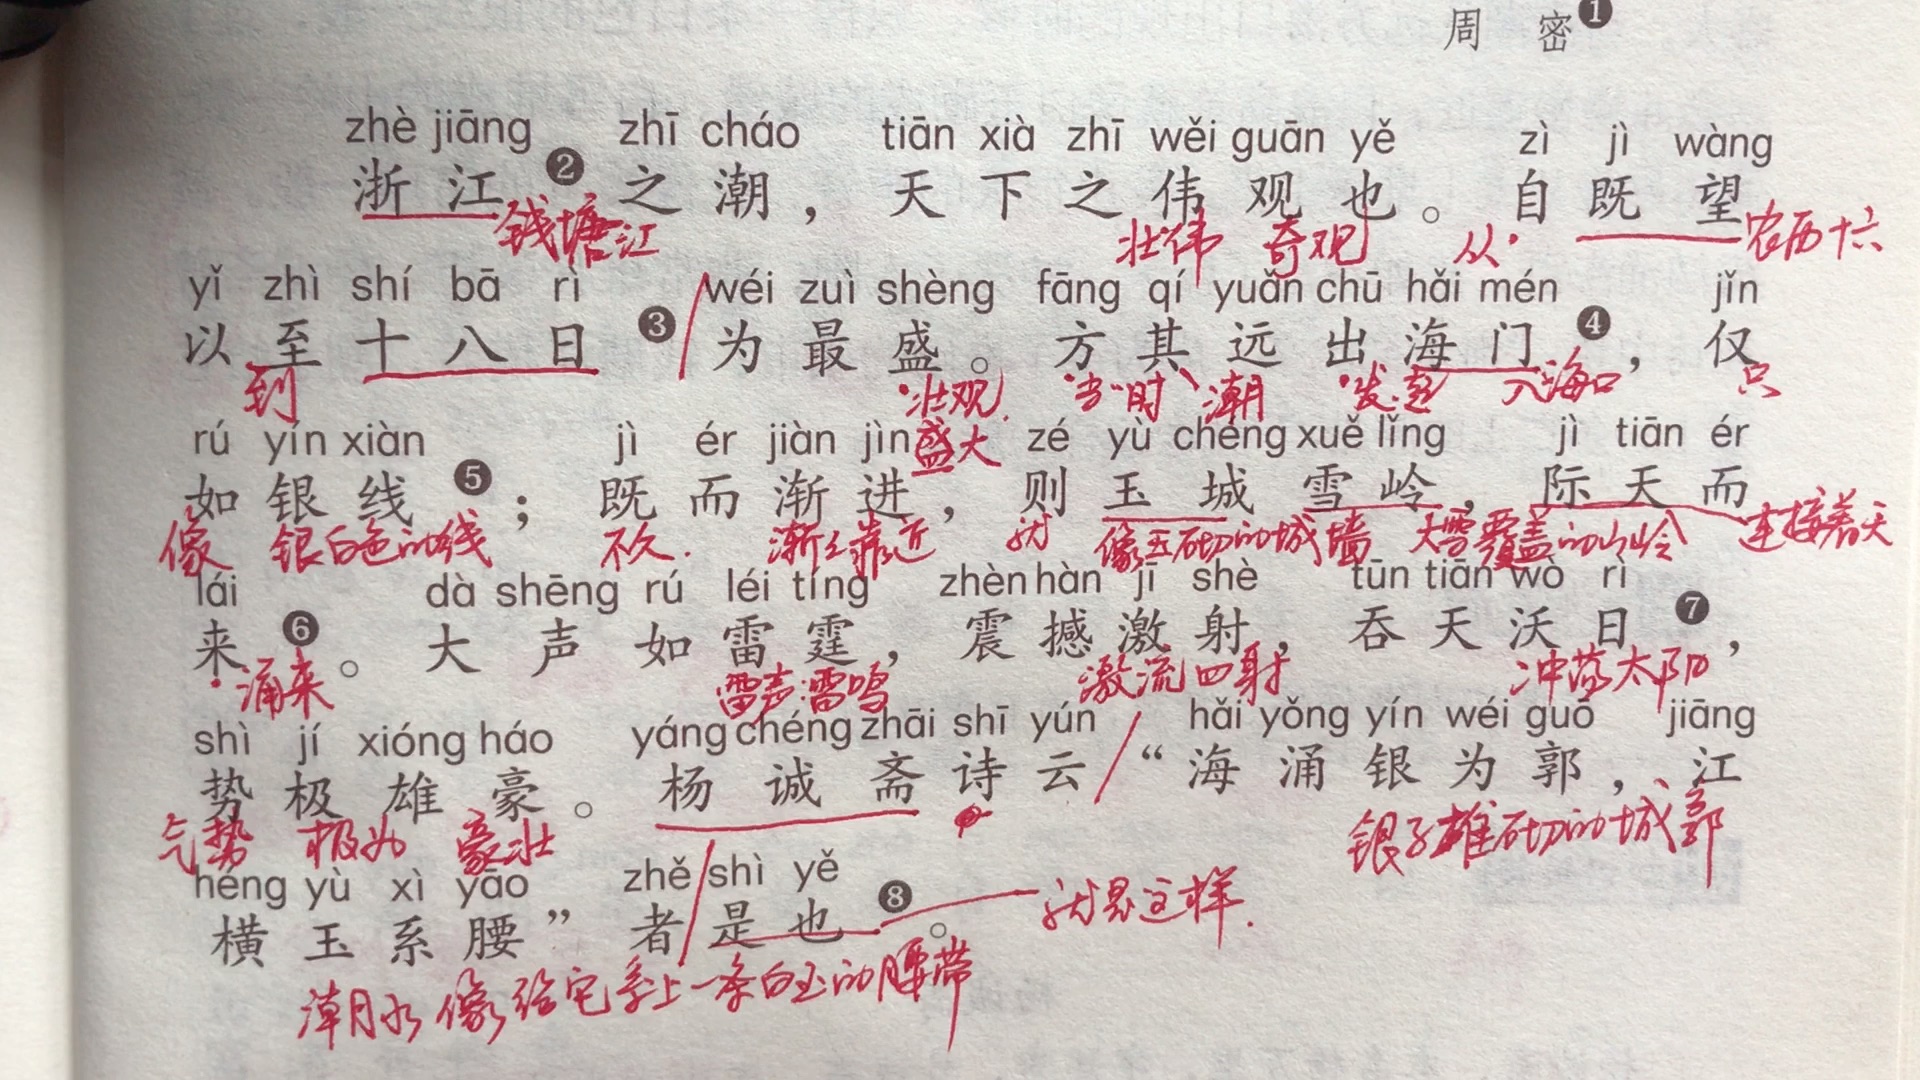 周密❶
zhè jiāng zhī cháo tiān xià zhī wěi guān yě zì jì wàng
浙江❷之潮，天下之伟观也。自既望
钱塘江 壮伟 奇观 从 农历十六
yǐ zhì shí bā rì wéi zuì shèng fāng qí yuǎn chū hǎi mén jǐn
以至十八日❸为最盛。方其远出海门❹，仅
到 壮观 盛大 当 时 潮 发起 入海口 只
rú yín xiàn jì ér jiàn jìn zé yù chéng xuě lǐng jì tiān ér
如银线❺；既而渐进，则玉城雪岭，际天而
像 银白色的线 不久. 渐渐靠近 就 像玉砌的城墙 大雪覆盖的山岭 连接着天
lái dà shēng rú léi tíng zhèn hàn jī shè tūn tiān wò rì
来❻。大声如雷霆，震撼激射，吞天沃日❼，
涌来 雷声雷鸣 激流四射 冲荡太阳
shì jí xióng háo yáng chéng zhāi shī yún hǎi yǒng yín wéi guō jiāng
势极雄豪。杨诚斋诗云“海涌银为郭，江
气势 极为 豪壮 银子堆砌的城郭
héng yù xì yāo zhě shì yě
横玉系腰”者是也❽。
就是这样.
潮水像给它系上一条白玉的腰带